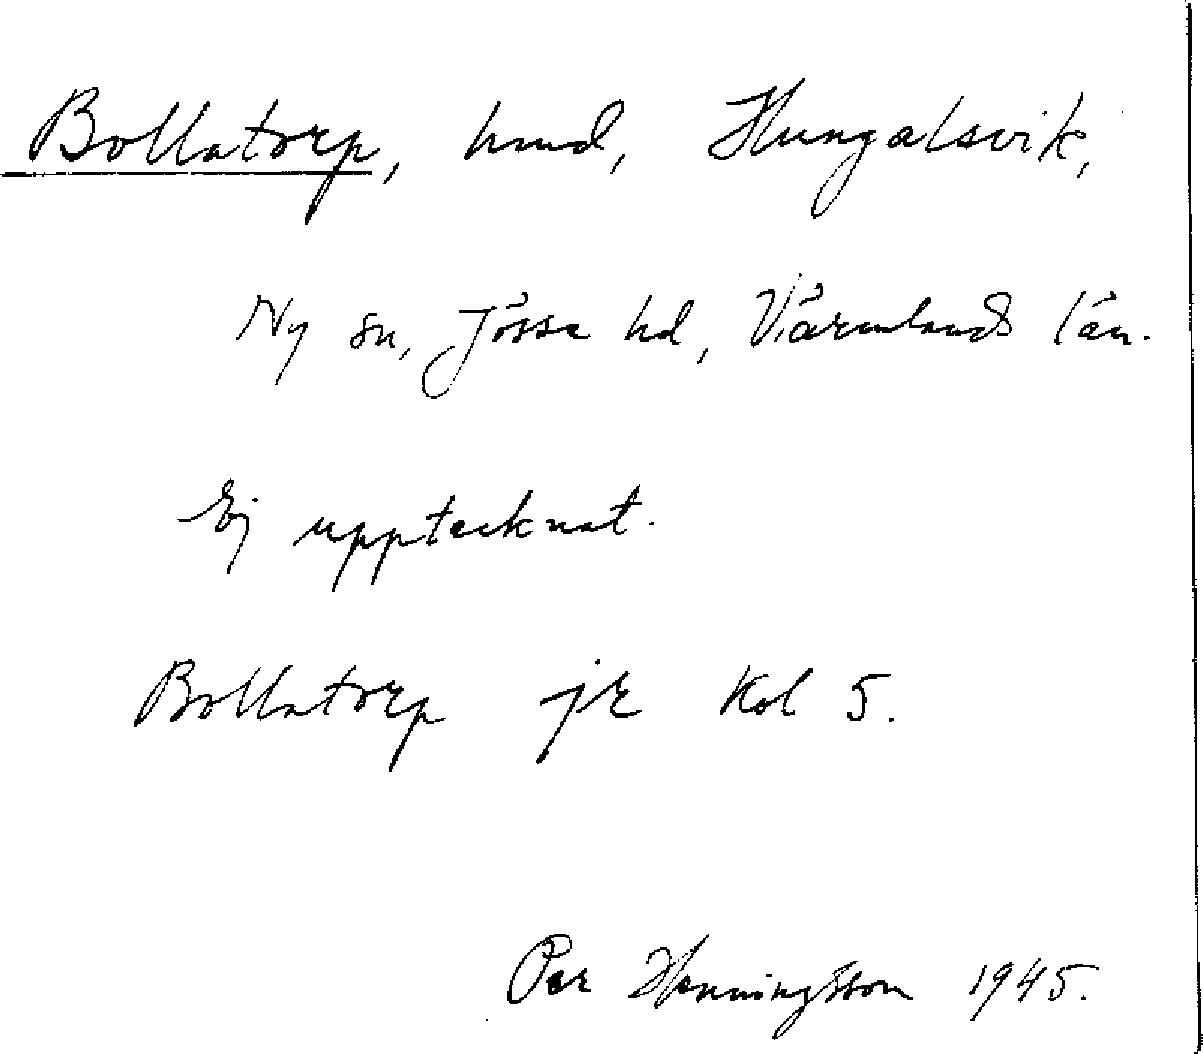 Bollatorp, hmd, Hungalsvik,
Ny sn, Jösse hd, Värmlands län.
Ej upptecknat.
Bollatorp jr Kol 5.
Per Henningsson 1945.